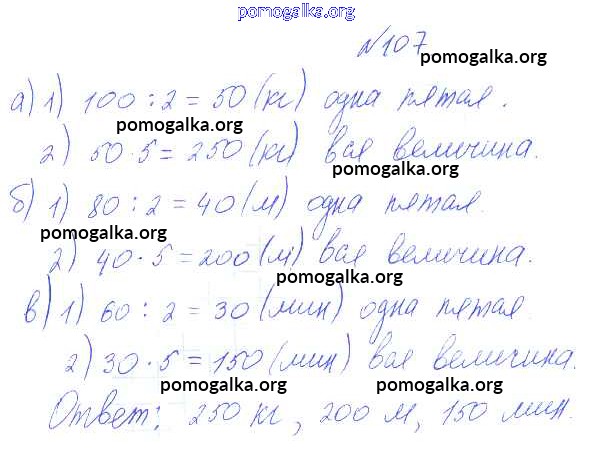 pomogalka.org
№107
pomogalka.org
а) 1) 100 : 2 = 50 (кг) одна пятая.
pomogalka.org
2) 50 · 5 = 250 (кг) вся величина.
pomogalka.org
б) 1) 80 : 2 = 40 (м) одна пятая.
pomogalka.org
2) 40 · 5 = 200 (м) вся величина.
pomogalka.org
в) 1) 60 : 2 = 30 (мин) одна пятая
pomogalka.org
2) 30 · 5 = 150 (мин) вся величина.
pomogalka.org pomogalka.org
Ответ: 250 кг, 200 м, 150 мин.